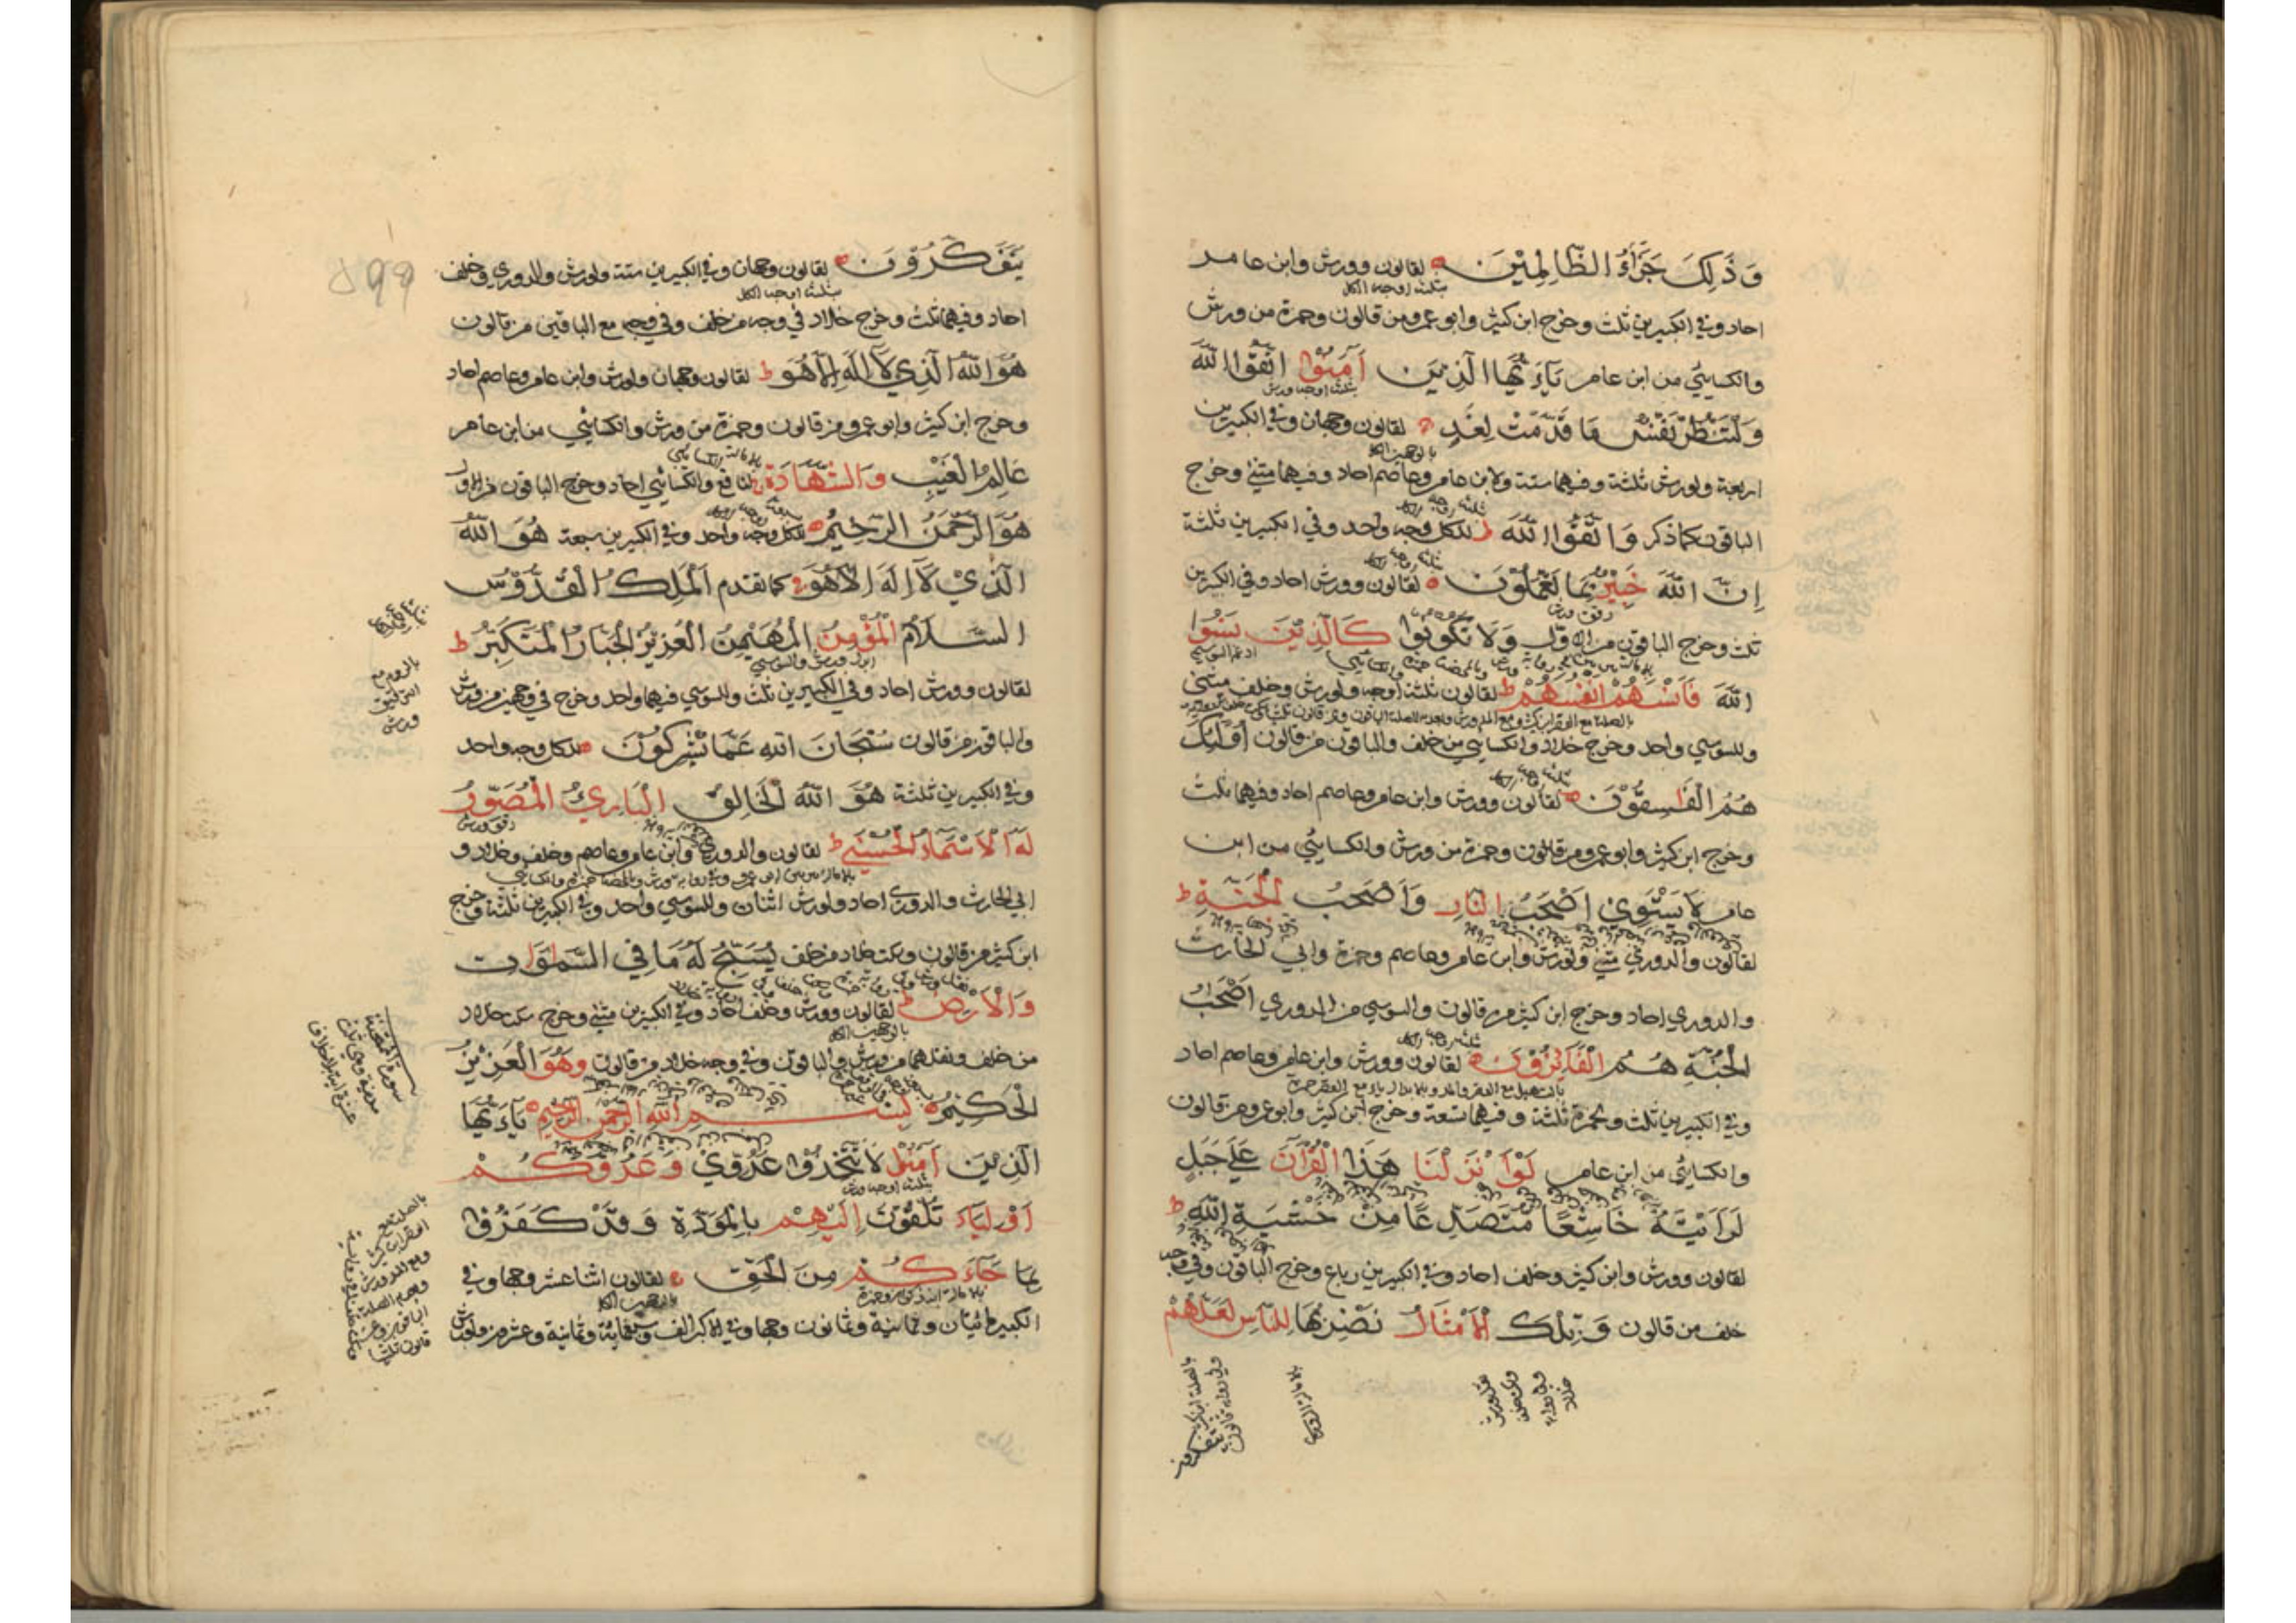 وَذَٰلِكَ جَزَاءُ الظَّالِمِيْنَ لقالون وورش وابن عامر
بثلثة اوجه الكل
احاد وفي الكبيرين ثلث وخرج ابن كثير وابو عمرو من قالون وحمزة من ورش
والكسايئي من ابن عامر يَآءَيُّهَا الَّذِيْنَ آمَنُوْا اتَّقُوا اللّٰهَ
بثلثة اوجه ورش
وَلْتَنْظُرْ نَفْسٌ مَا قَدَّمَتْ لِغَدٍ لقالون وجهان وفي الكبيرين
بالوجهين الكل
اربعة ولورش ثلثة وفيهما ستة ولابن عامر وعاصم احاد وفيهما مثنى وخرج
الباقون كما ذكر وَاتَّقُوا اللّٰهَ ط للكل وجه واحد وفي الكبيرين ثلثة
اِنَّ اللّٰهَ خَبِيْرٌ بِمَا تَعْمَلُوْنَ لقالون وورش احاد وفي الكبرين
رقق ورش
ثلث وخرج الباقون من الاول وَلَا تَكُوْنُوْا كَالَّذِيْنَ نَسُوا
ادغم السوسي
اللّٰهَ فَاَنْسٰهُمْ اَنْفُسَهُمْ ط لقالون ثلثة اوجه ولورش وخلف مثنى
وللسوسي واحد وخرج خلاد والكسايئي من خلف والباقون من قالون اُولٰٓئِكَ
هُمُ الْفٰسِقُوْنَ لقالون وورش وابن عامر وعاصم احاد وفيهما ثلث
وخرج ابن كثير وابو عمرو من قالون وحمزة من ورش والكسايئي من ابن
عامر لَا يَسْتَوِيْ اَصْحٰبُ النَّارِ وَاَصْحٰبُ الْجَنَّةِ ط
لقالون والدوري مثنى ولورش وابن عامر وعاصم وحمزة وابي الحارث
والدوري احاد وخرج ابن كثير من قالون والسوسي من الدوري اَصْحٰبُ
الْجَنَّةِ هُمُ الْفَائِزُوْنَ لقالون وورش وابن عامر وعاصم احاد
وفي الكبيرين ثلث ولحمزة ثلثة وفيهما تسعة وخرج ابن كثير وابو عمرو من قالون
والكسايئي من ابن عامر لَوْ اَنْزَلْنَا هٰذَا الْقُرْآنَ عَلٰى جَبَلٍ
لَرَاَيْتَهُ خَاشِعًا مُتَصَدِّعًا مِنْ خَشْيَةِ اللّٰهِ ط
لقالون وورش وابن كثير وخلف احاد وفي الكبيرين رباع وخرج الباقون وفي وجه
خلف من قالون وَتِلْكَ الْاَمْثَالُ نَضْرِبُهَا لِلنَّاسِ لَعَلَّهُمْ
يتفكرون
يَتَفَكَّرُوْنَ لقالون وجهان وفي الكبيرين ستة ولورش والدوري وخلف
بثلثة اوجه الكل
احاد وفيهما ثلث وخرج خلاد في وجه من خلف وفي وجه مع الباقين من قالون
هُوَ اللّٰهُ الَّذِيْ لَا اِلٰهَ اِلَّا هُوَ ط لقالون وجهان ولورش وابن عامر وعاصم احاد
وخرج ابن كثير وابو عمرو من قالون وحمزة من ورش والكسايئي من ابن عامر
بالامالة الكسايئي
عَالِمُ الْغَيْبِ وَالشَّهَادَةِ لنافع والكسايئي احاد وخرج الباقون من الاول
هُوَ الرَّحْمٰنُ الرَّحِيْمُ للكل وجه واحد وفي الكبيرين سبعة هُوَ اللّٰهُ
الَّذِيْ لَا اِلٰهَ اِلَّا هُوَ كما تقدم اَلْمَلِكُ الْقُدُّوْسُ
السَّلَامُ الْمُؤْمِنُ الْمُهَيْمِنُ الْعَزِيْزُ الْجَبَّارُ الْمُتَكَبِّرُ ط
ابدل ورش والسوسي
لقالون وورش احاد وفي الكبيرين ثلث وللسوسي فيهما واحد وخرج في وجهين من ورش
والباقون من قالون سُبْحَانَ اللّٰهِ عَمَّا يُشْرِكُوْنَ للكل وجه واحد
وفي الكبيرين ثلثة هُوَ اللّٰهُ الْخَالِقُ الْبَارِئُ الْمُصَوِّرُ
رقق ورش
لَهُ الْاَسْمَاءُ الْحُسْنٰى ط لقالون والدوري وابن عامر وعاصم وخلف وخلاد و
ابي الحارث والدوري احاد ولورش اثنان وللسوسي واحد وفي الكبيرين ثلثة وخرج
ابن كثير من قالون وسكت خلاد من خلف يُسَبِّحُ لَهُ مَا فِي السَّمٰوَاتِ
وَالْاَرْضِ ط لقالون وورش وخلف احاد وفي الكبيرين مثنى وخرج سكت خلاد
بالوجهين الكل
من خلف ونقلهما من ورش والباقون وفي وجه خلاد من قالون وَهُوَ الْعَزِيْزُ
الْحَكِيْمُ بِسْمِ اللّٰهِ الرَّحْمٰنِ الرَّحِيْمِ يَآءَيُّهَا
الَّذِيْنَ آمَنُوْا لَا تَتَّخِذُوْا عَدُوِّيْ وَعَدُوَّكُمْ
بثلثة اوجه ورش
اَوْلِيَاءَ تُلْقُوْنَ اِلَيْهِمْ بِالْمَوَدَّةِ وَقَدْ كَفَرُوْا
بِمَا جَاءَكُمْ مِنَ الْحَقِّ لقالون اثنا عشر وجها وفي
بالامالة ابن ذكوان وحمزة
الكبير مائتان وثمانية وثمانون وجها وفي الاكبر الف وسبعمائة وثمانية وعشرون ولورش
بالروم مع
الترقيق
ورش
سورة الممتحنة
مدنية وهي ثلث
عشرة اية بلا خلاف